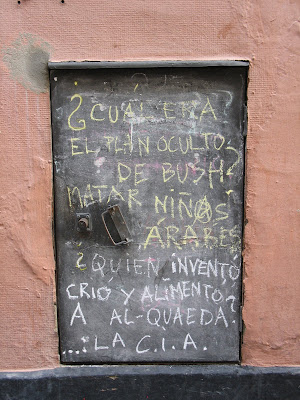 ¿CUÁL ERA
EL PLAN OCULTO
DE BUSH?
MATAR NIÑ@S
ÁRABES
¿QUIEN iNVENTÓ
CRIO Y ALIMENTO?
A AL-QUAEDA.
...¡LA C.I.A.